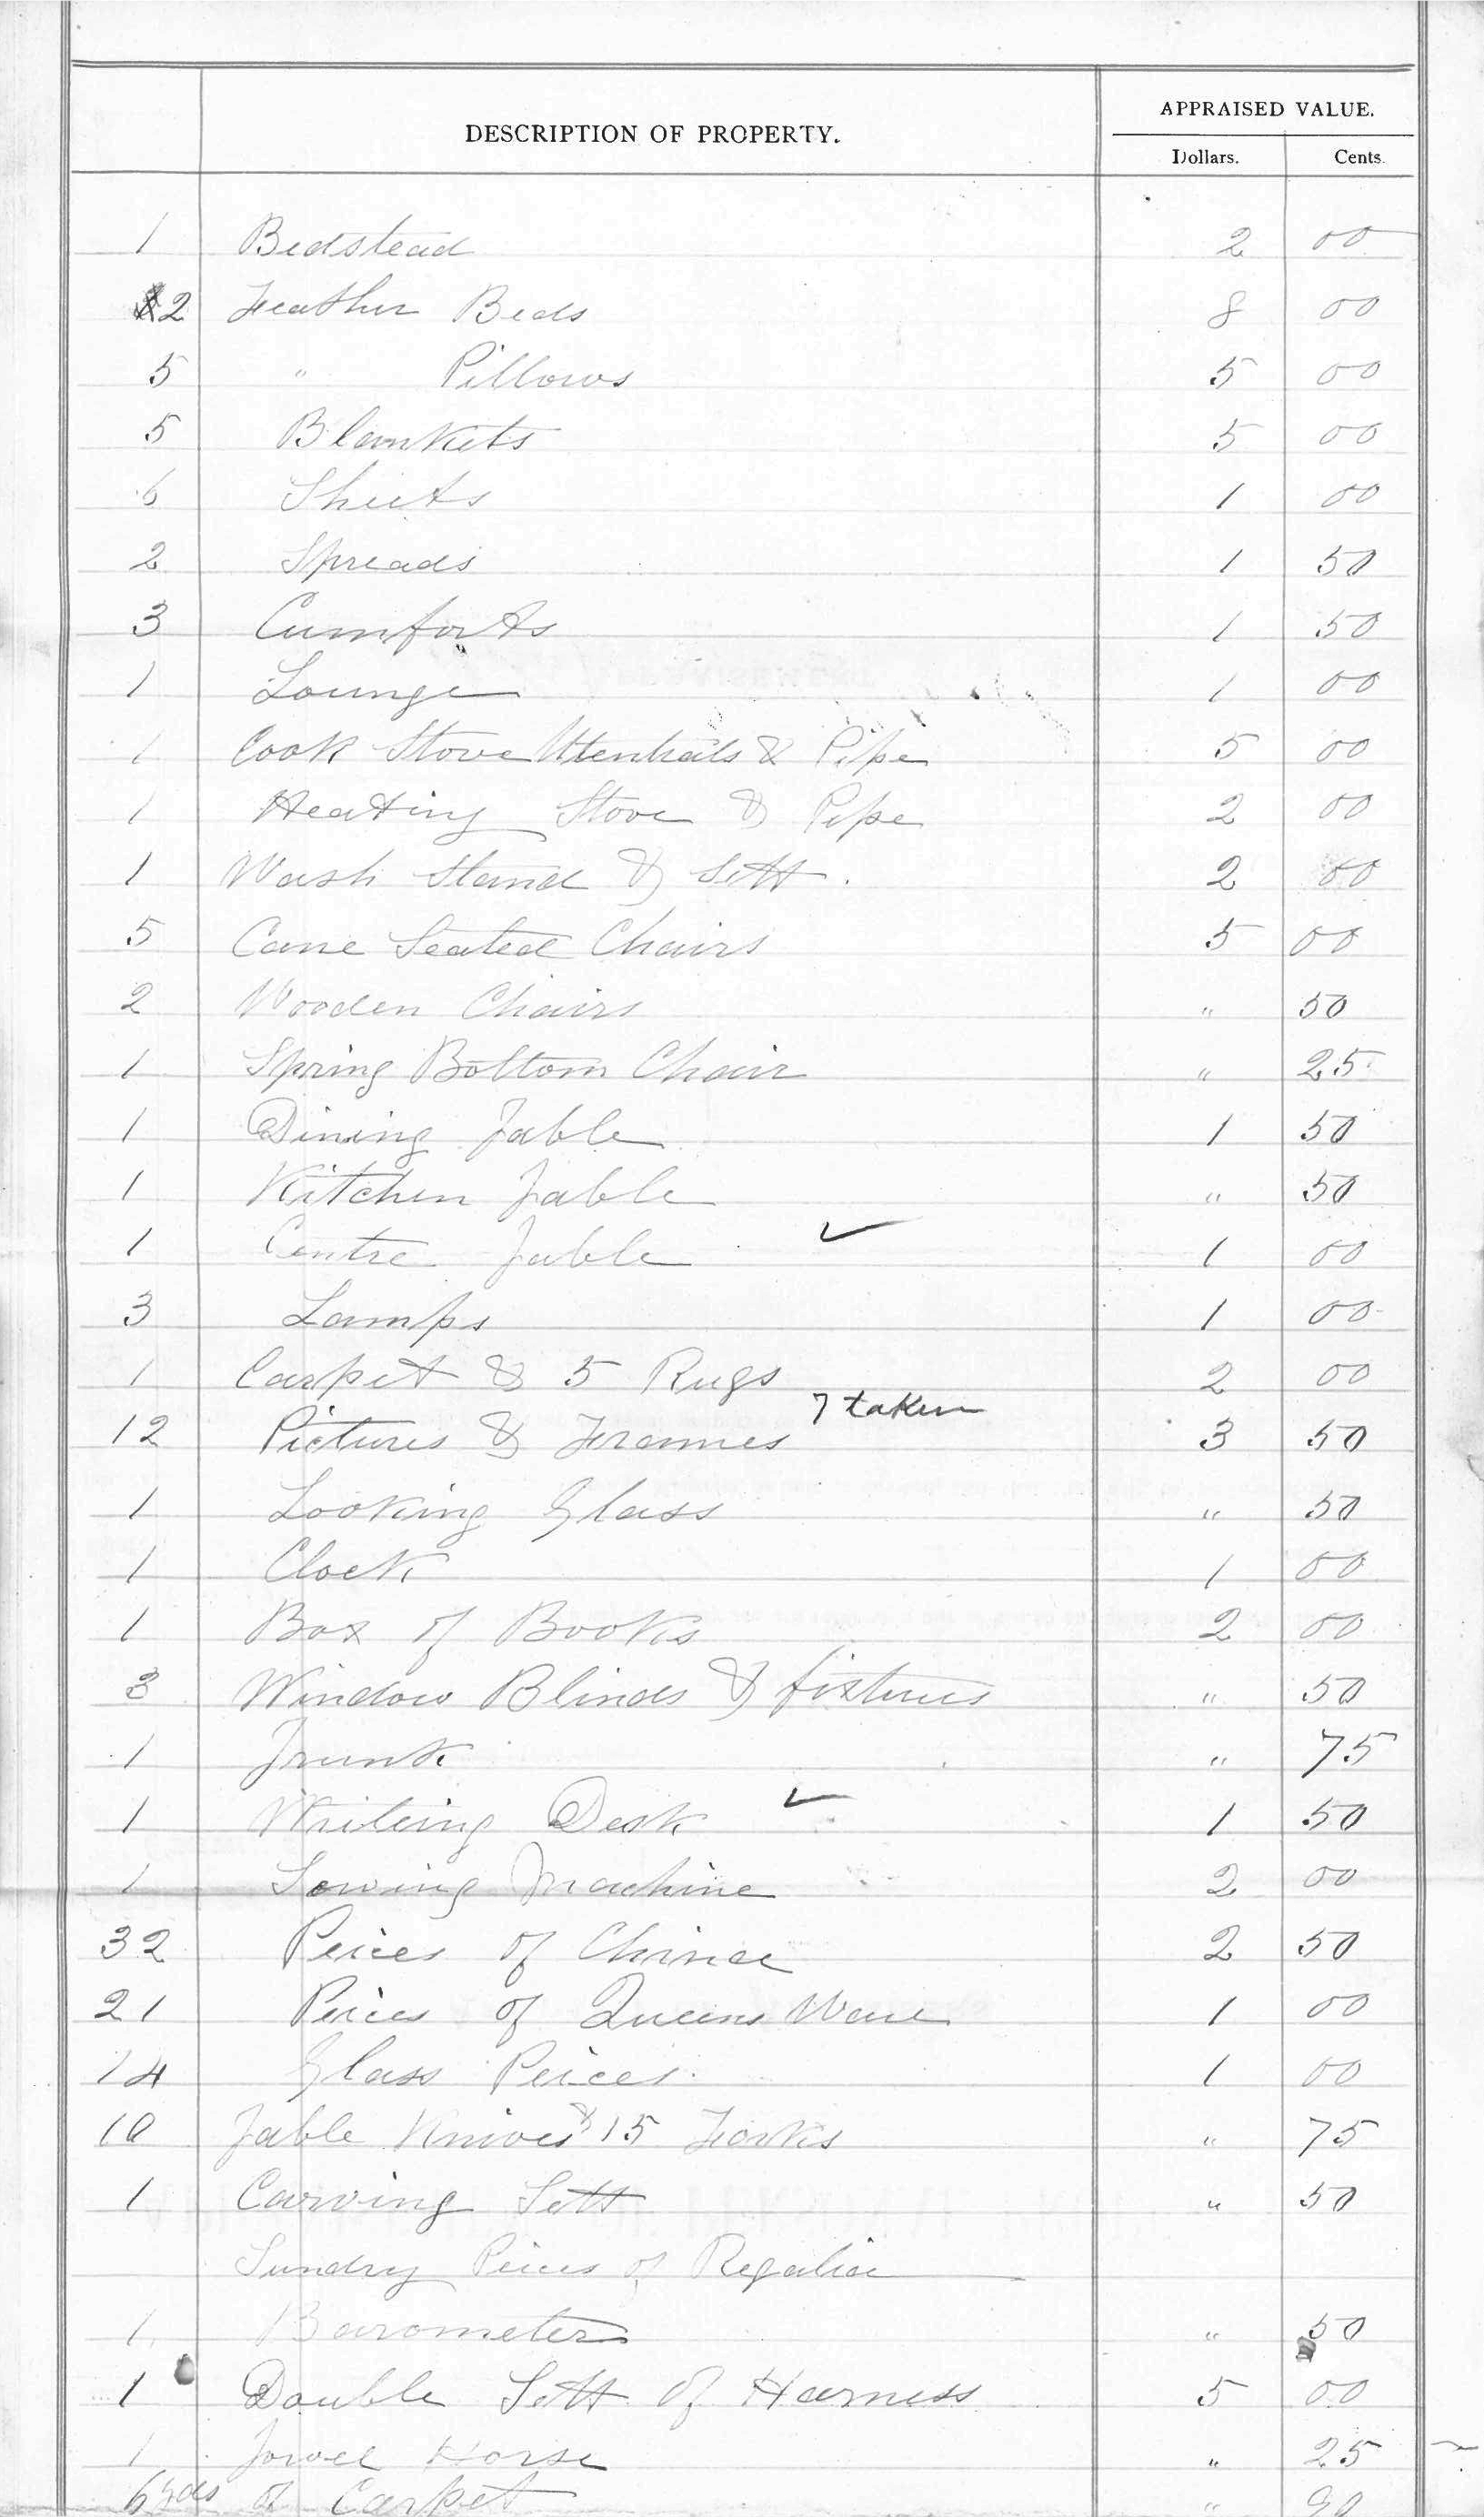 DESCRIPTION OF PROPERTY. APPRAISED VALUE.
Dollars. Cents.
1 Bedstead 2 00
2 Feather Beds 8 00
5 " Pillows 5 00
5 Blankets 5 00
6 Sheets 1 00
2 Spreads 1 50
3 Cumforts 1 50
1 Lounge 1 00
1 Cook Stove Utenhails & Pipe 5 00
1 Heating Stove & Pipe 2 00
1 Wash Stand & Sett. 2 00
5 Cane Seated Chairs 5 00
2 Wooden Chairs " 50
1 Spring Bottom Chair " 25
1 Dining Table 1 50
1 Kitchen Table " 50
1 Centre Table ✓ 1 00
3 Lamps 1 00
1 Carpet & 5 Rugs 2 00
7 taken
12 Pictures & Frames 3 50
1 Looking Glass " 50
1 Clock 1 00
1 Box of Books 2 00
3 Window Blinds & fixtures " 50
1 Trunk " 75
1 Writeing Desk ✓ 1 50
1 Sewing Machine 2 00
32 Peices of China 2 50
21 Peices of Queens Ware 1 00
14 Glass Peices 1 00
10 Table Knives & 15 Forks " 75
1 Carving Sett " 50
Sundry Peices of Regalia
1 Barometer " 50
1 Double Sett of Harness 5 00
1 Towel Horse " 25
6 yds of Carpet " 90